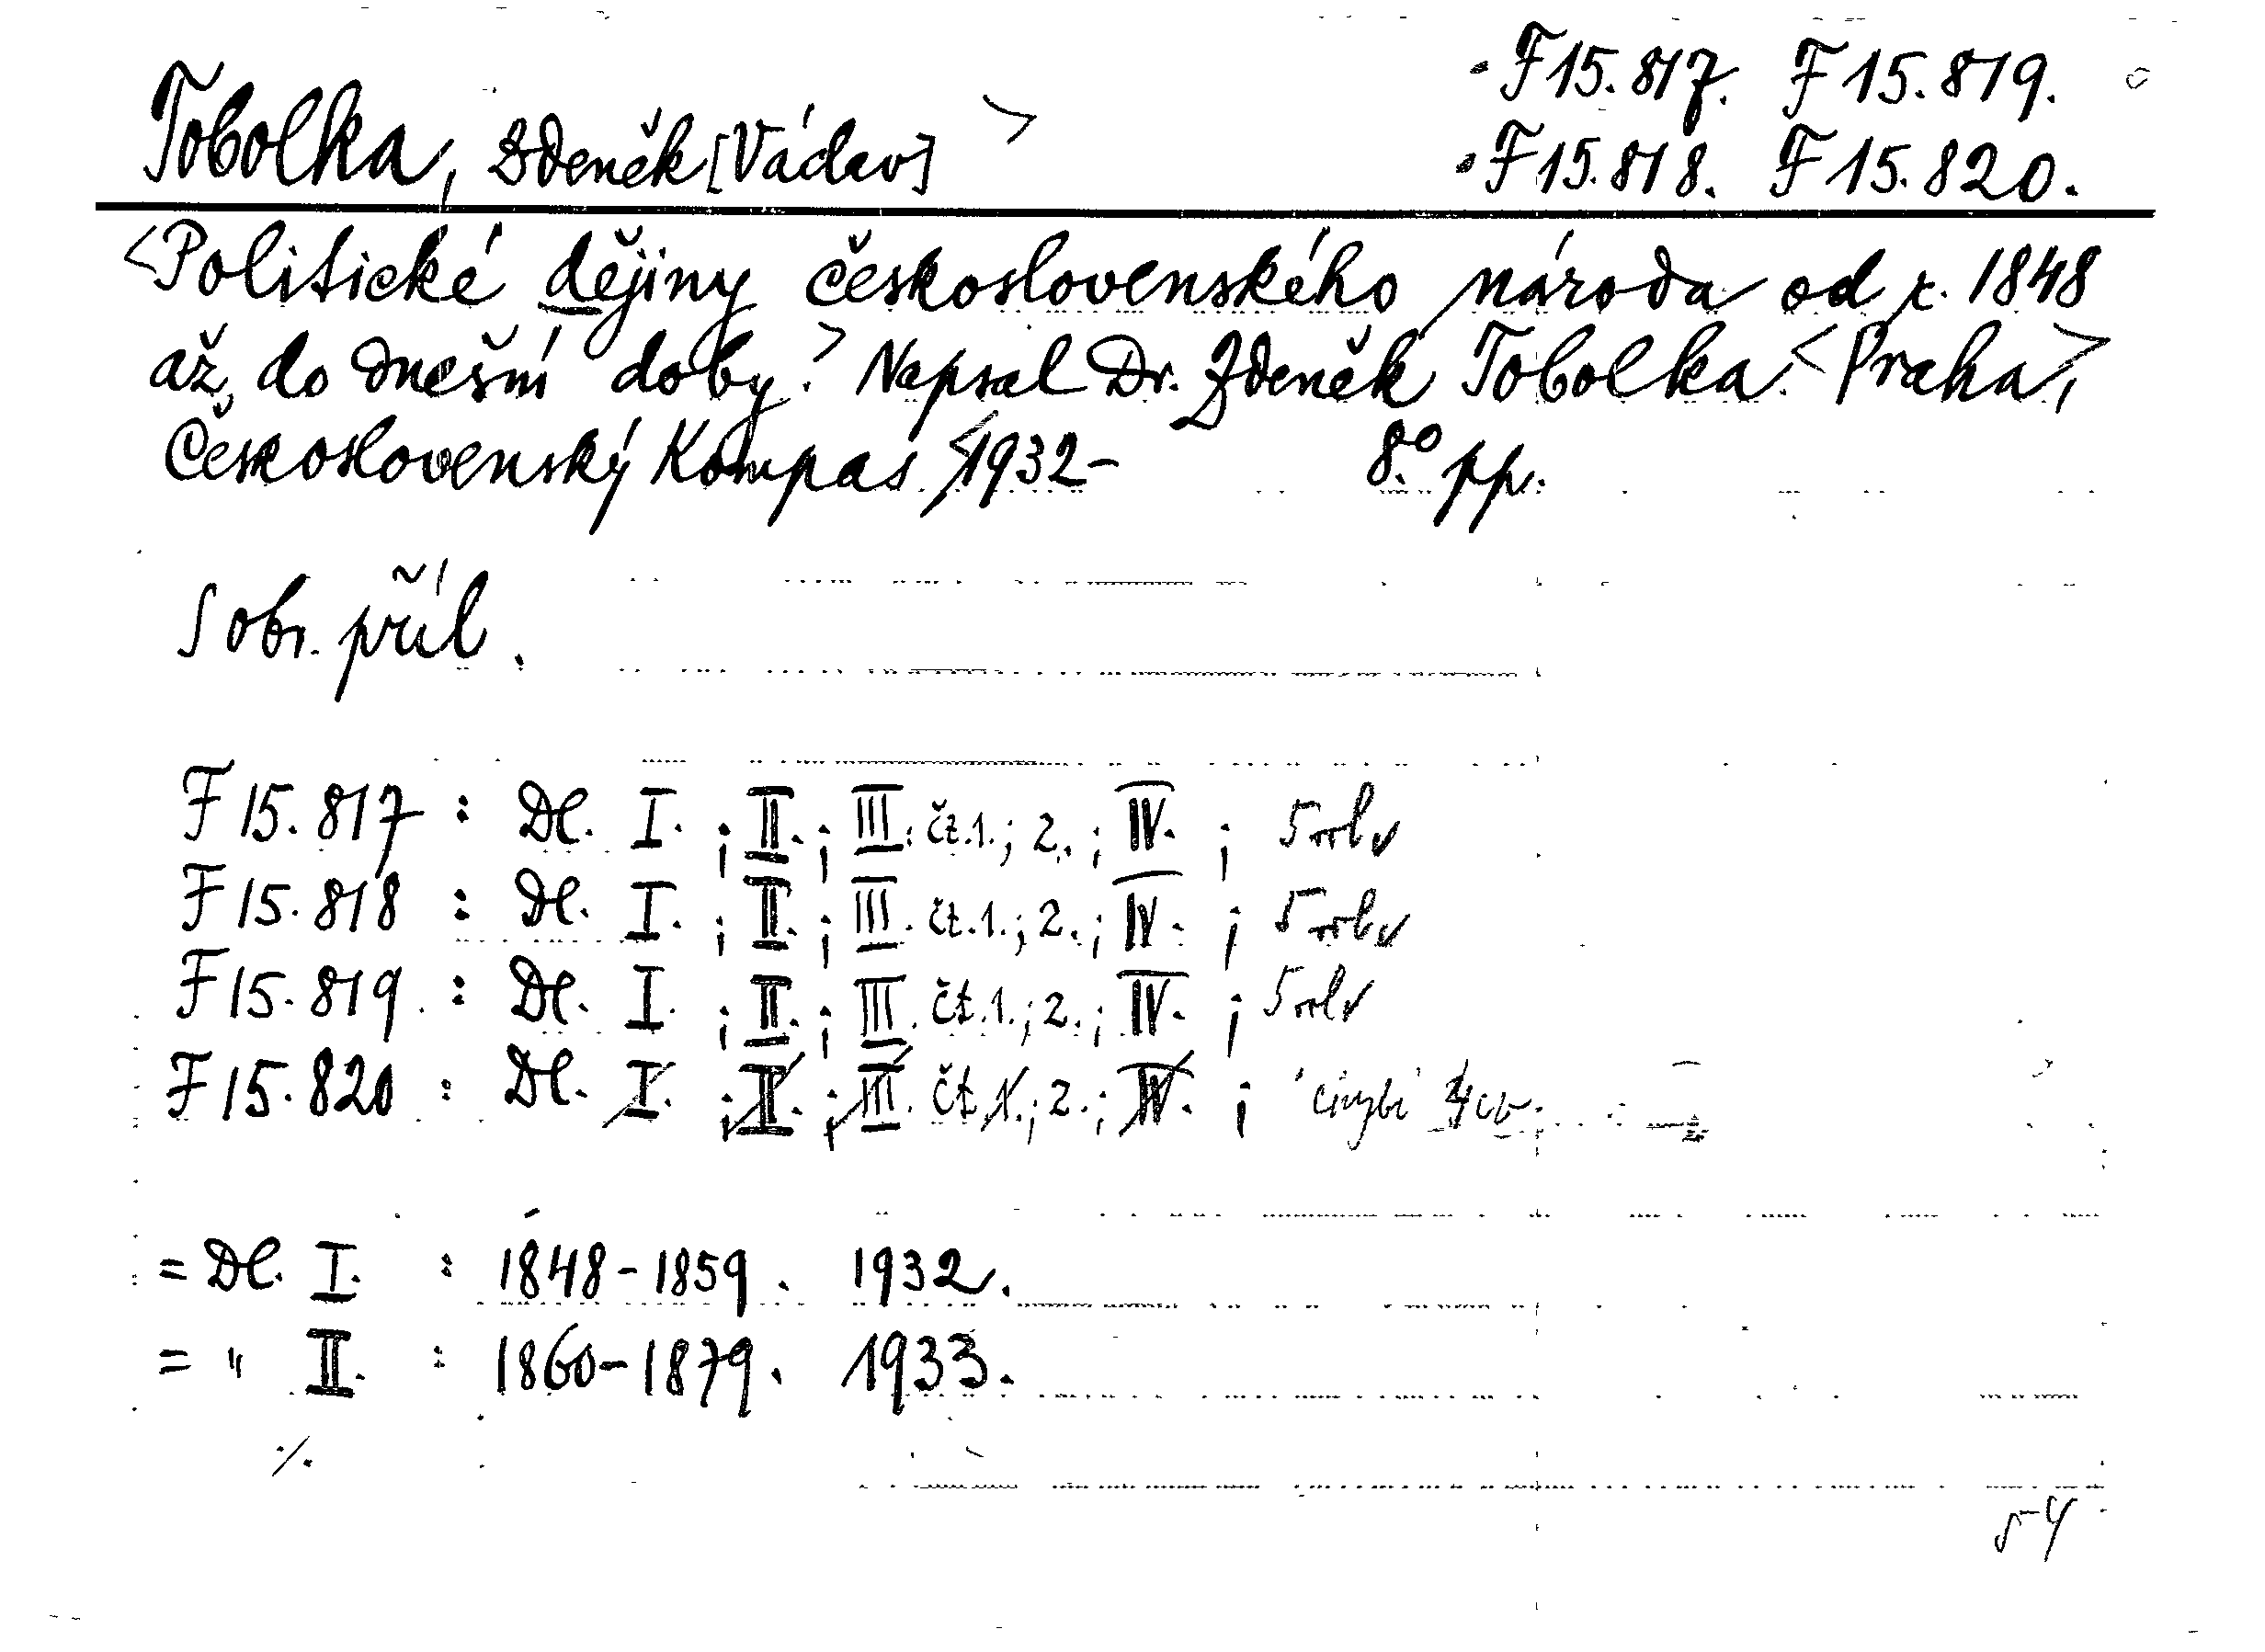 F 15.817. F 15.819.
Tobolka, Zdeněk [Václav] >
F 15.818. F 15.820.
<Politické dějiny československého národa od r. 1848
až do dnešní doby.> Napsal Dr. Zdeněk Tobolka. <Praha>,
Československý Kompas <1932- 8.° pp.
S obr. příl.
F 15.817 : Dl. I. ; II. ; III. čt. 1. ; 2. ; IV. ; 5
F 15.818 : Dl. I. ; II. ; III. čt. 1. ; 2. ; IV. ; 5
F 15.819 : Dl. I. ; II. ; III. čt. 1. ; 2. ; IV. ; 5
F 15.820 : Dl. I. ; II. ; III. čt. 1. ; 2. ; IV. ; chybí
= Dl. I. : 1848-1859. 1932.
= " II. : 1860-1879. 1933.
./.
54